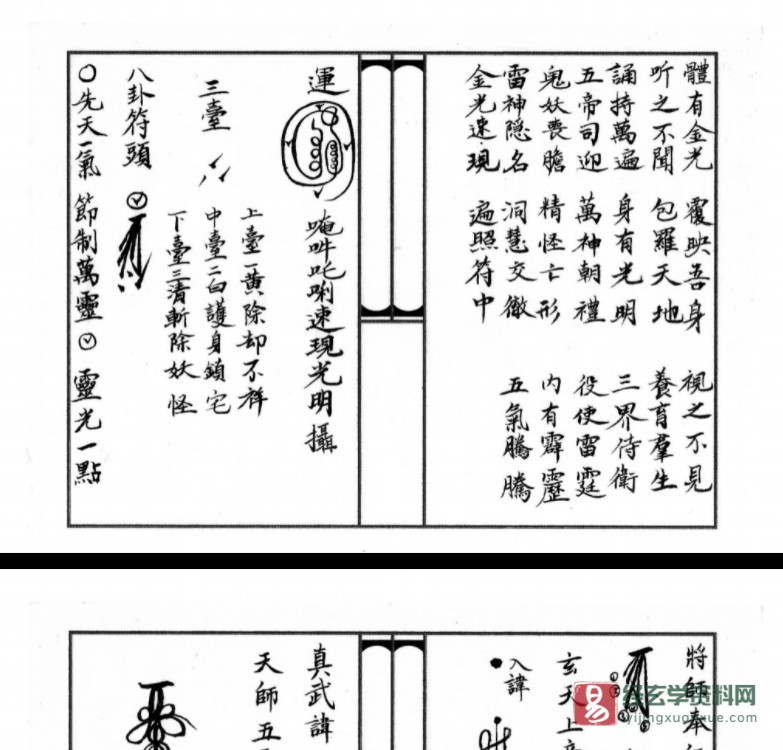 體有金光 覆映吾身 視之不見
听之不聞 包羅天地 養育羣生
誦持萬遍 身有光明 三界侍衛
五帝司迎 萬神朝禮 役使雷霆
鬼妖喪膽 精怪亡形 內有霹靂
雷神隐名 洞慧交徹 五氣騰騰
金光速現 遍照符中
運
唵吽吒唎速現光明攝
三臺
上臺一黄除却不祥
中臺二白護身鎮宅
下臺三清斬除妖怪
八卦符頭
先天一氣 節制萬靈 靈光一點
將師奉
玄天上帝
入諱
真武諱
天師五
易
玄学资料网
yijingxuanxue.com